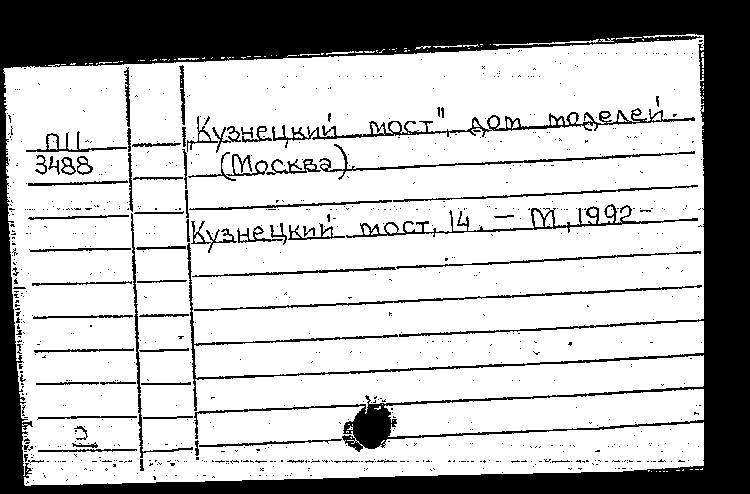 П11
3488
"Кузнецкий мост", дом моделей.
(Москва).
Кузнецкий мост, 14. – М, 1992 –